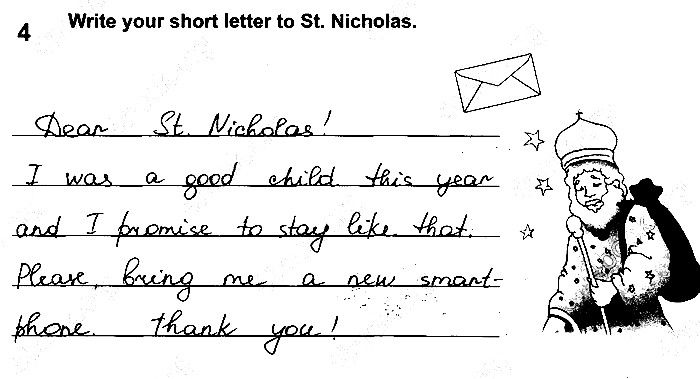 4 Write your short letter to St. Nicholas.
Dear St. Nicholas!
I was a good child this year
and I promise to stay like that.
Please, bring me a new smart-
phone. Thank you!